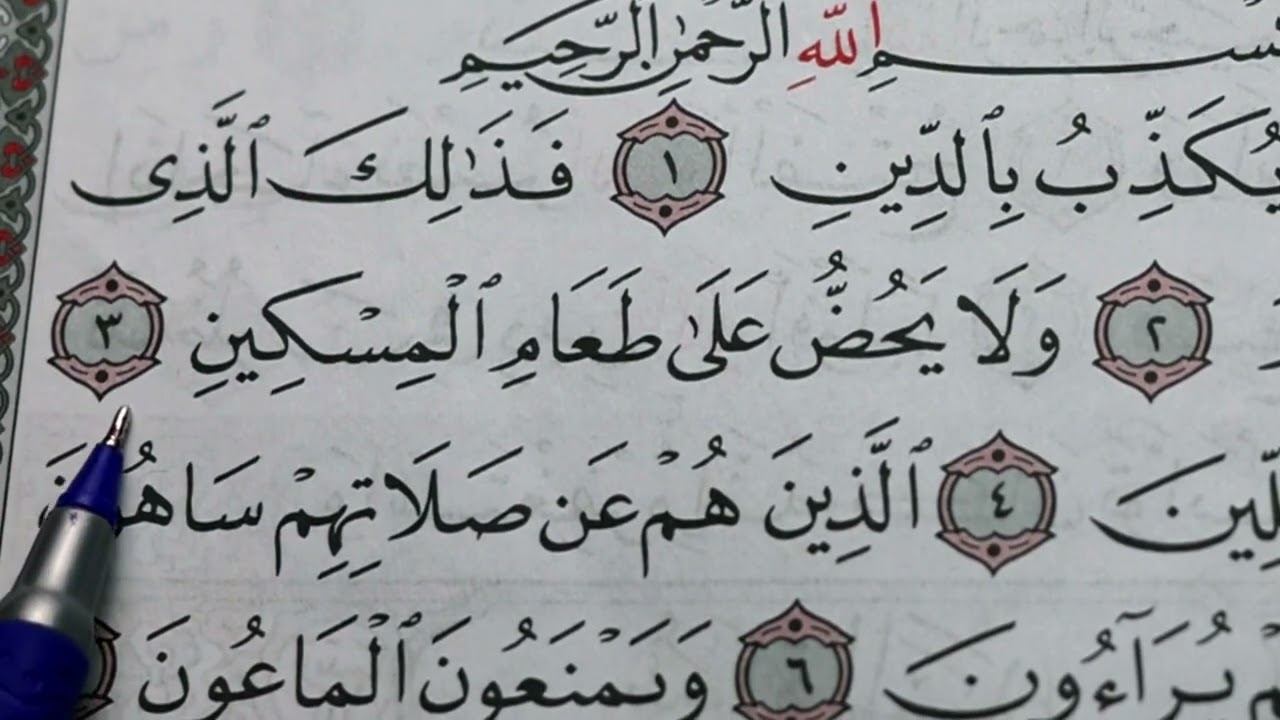 ـسـمِ ٱللَّهِ ٱلرَّحْمَٰنِ ٱلرَّحِيمِ
يُكَذِّبُ بِٱلدِّينِ ١ فَذَٰلِكَ ٱلَّذِى
٢ وَلَا يَحُضُّ عَلَىٰ طَعَامِ ٱلْمِسْكِينِ ٣
ـلِّينَ ٤ ٱلَّذِينَ هُمْ عَن صَلَاتِهِمْ سَاهُونَ
ـمْ يُرَآءُونَ ٦ وَيَمْنَعُونَ ٱلْمَاعُونَ